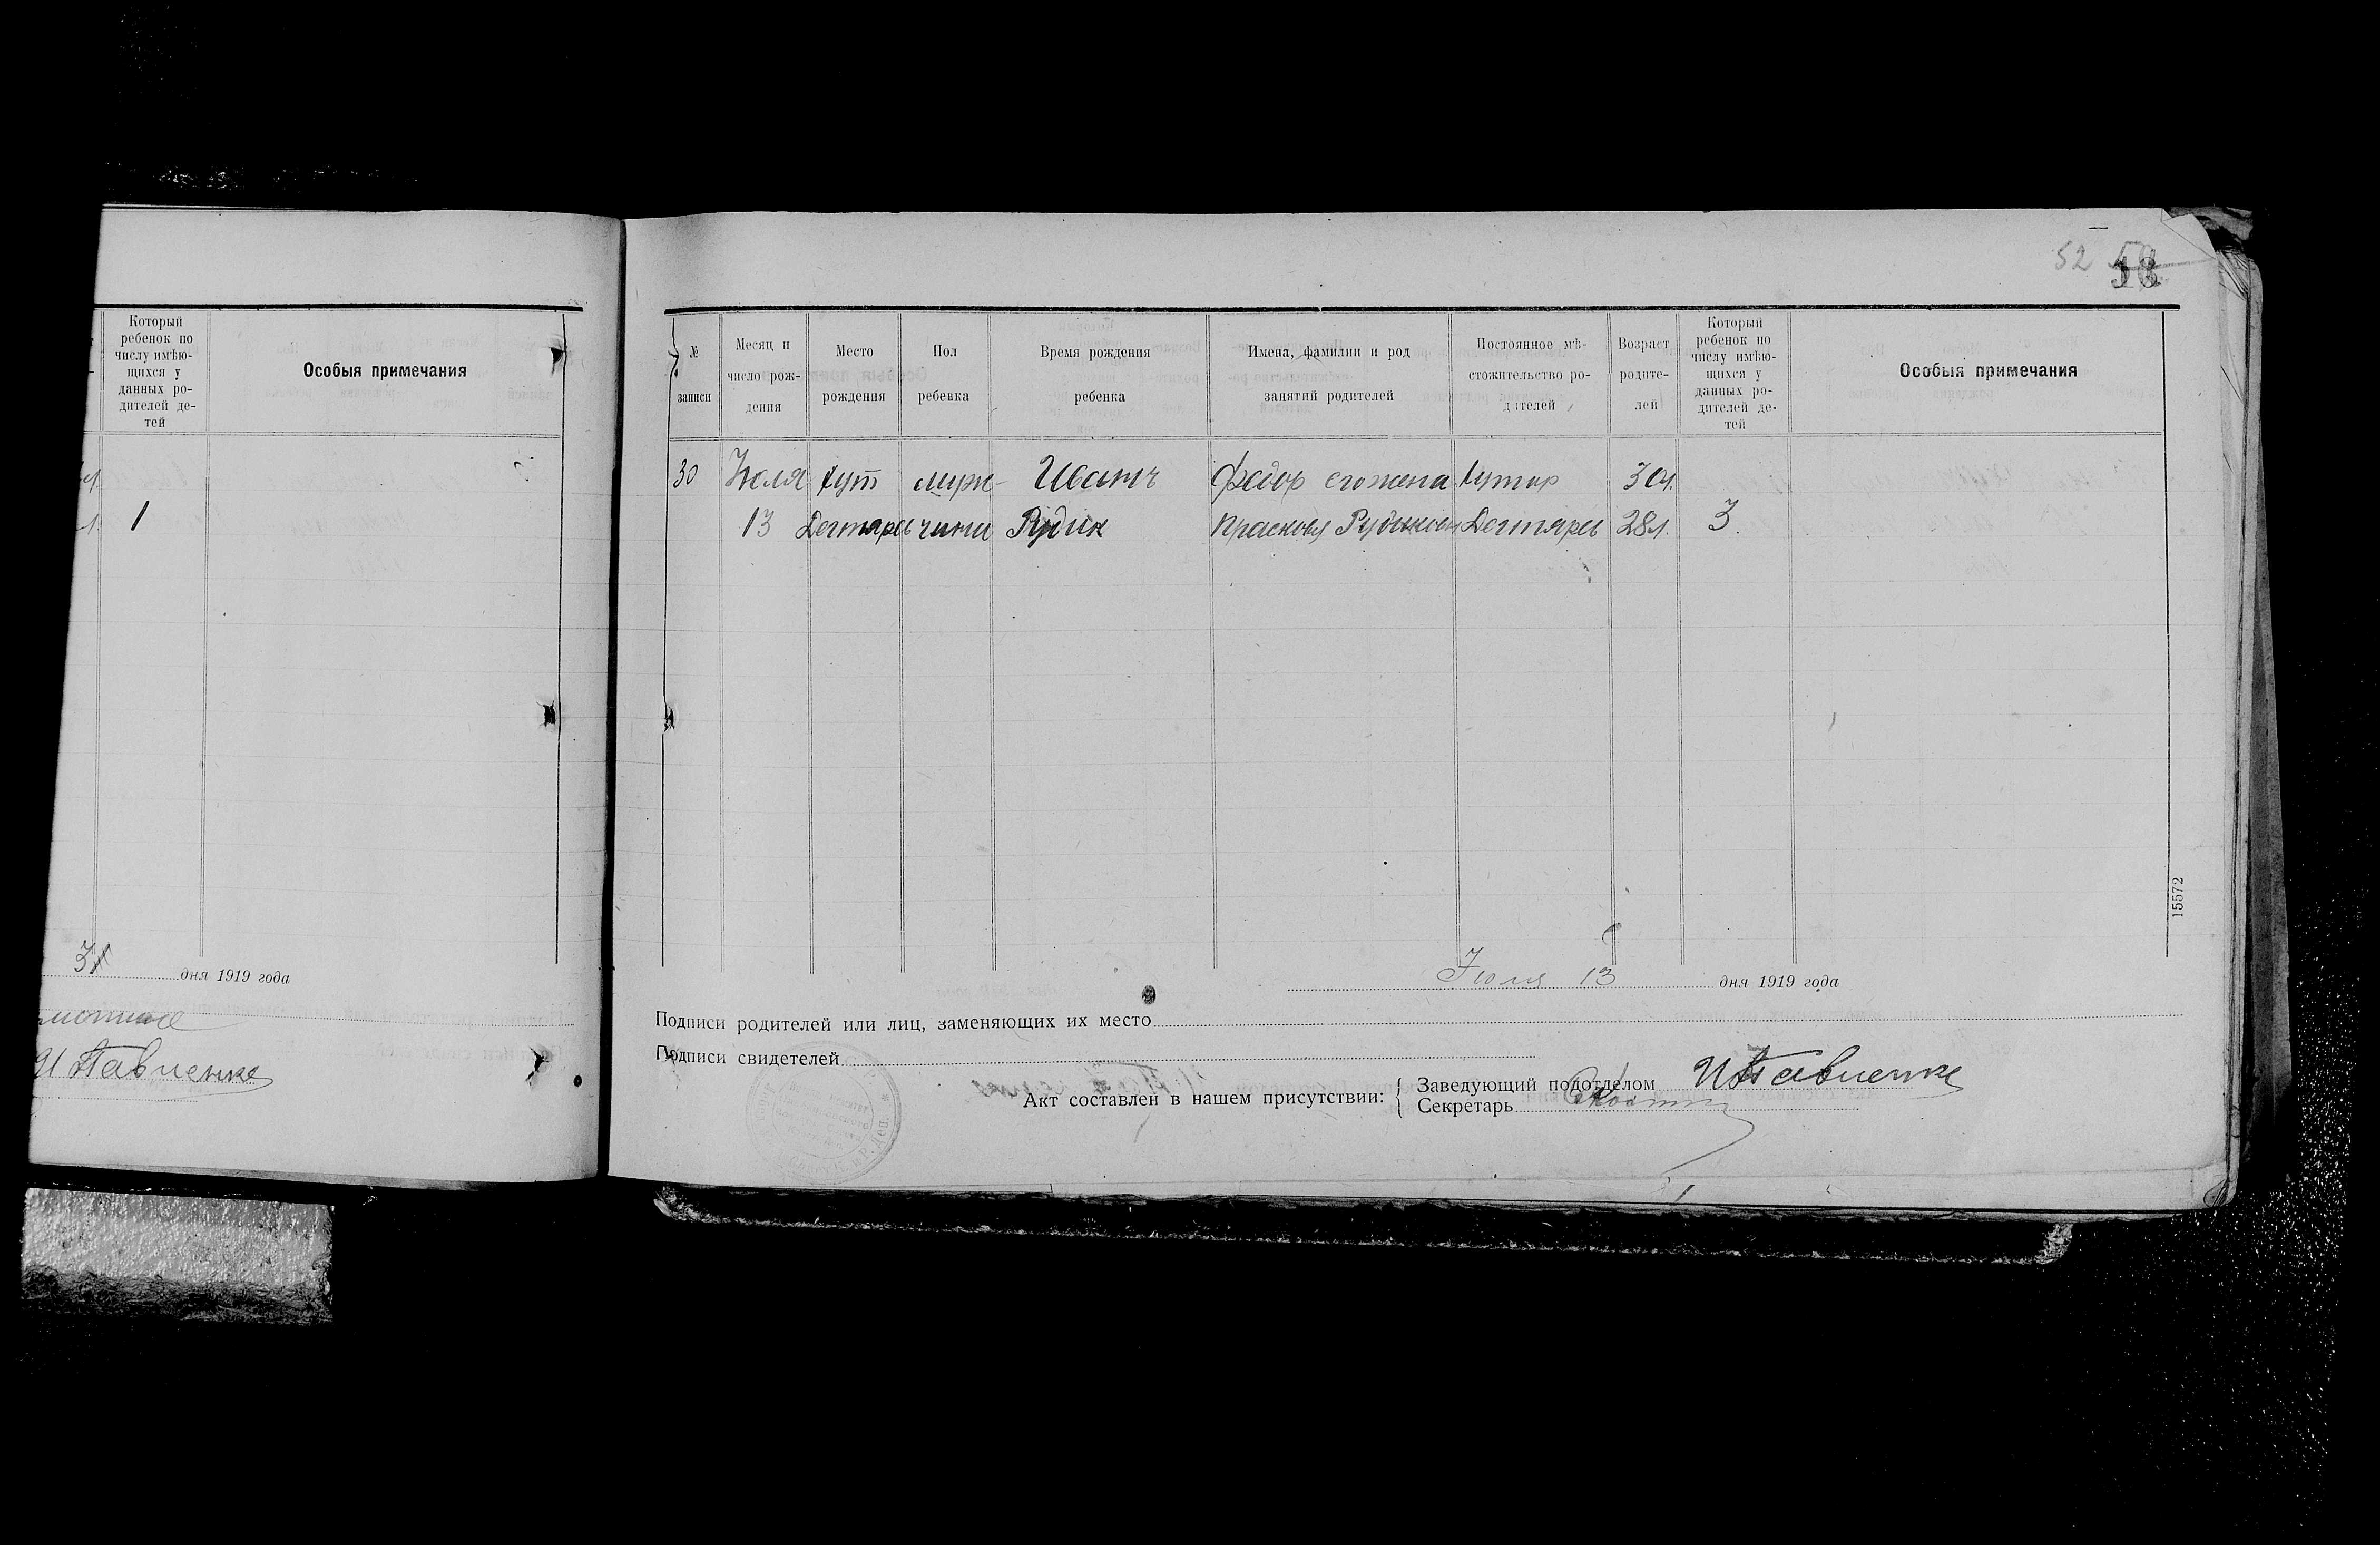 Который
ребенок по
числу имѣю-
щихся у
данных ро-
дителей де-
тей
Особыя примечания
1
31 дня 1919 года
И Павленко
52
№
записи
Месяц и
число рож-
дения
Место
рождения
Пол
ребенка
Время рождения
ребенка
Имена, фамилии и род
занятий родителей
Постоянное мѣ-
стожительство ро-
дителей
Возраст
родите-
лей
Который
ребенок по
числу имѣю-
щихся у
данных ро-
дителей де-
тей
Особыя примечания
30 Июля хут мужс- Иван Федор его жена Хутор 30л.
13 Дегтярев чини Рудик Прасковя Рудикови Дегтярев 28л. 3.
15572
Июля 13 дня 1919 года
Подписи родителей или лиц, заменяющих их место
Подписи свидетелей
Акт составлен в нашем присутствии:
Заведующий подотделом И Павленко
Секретарь